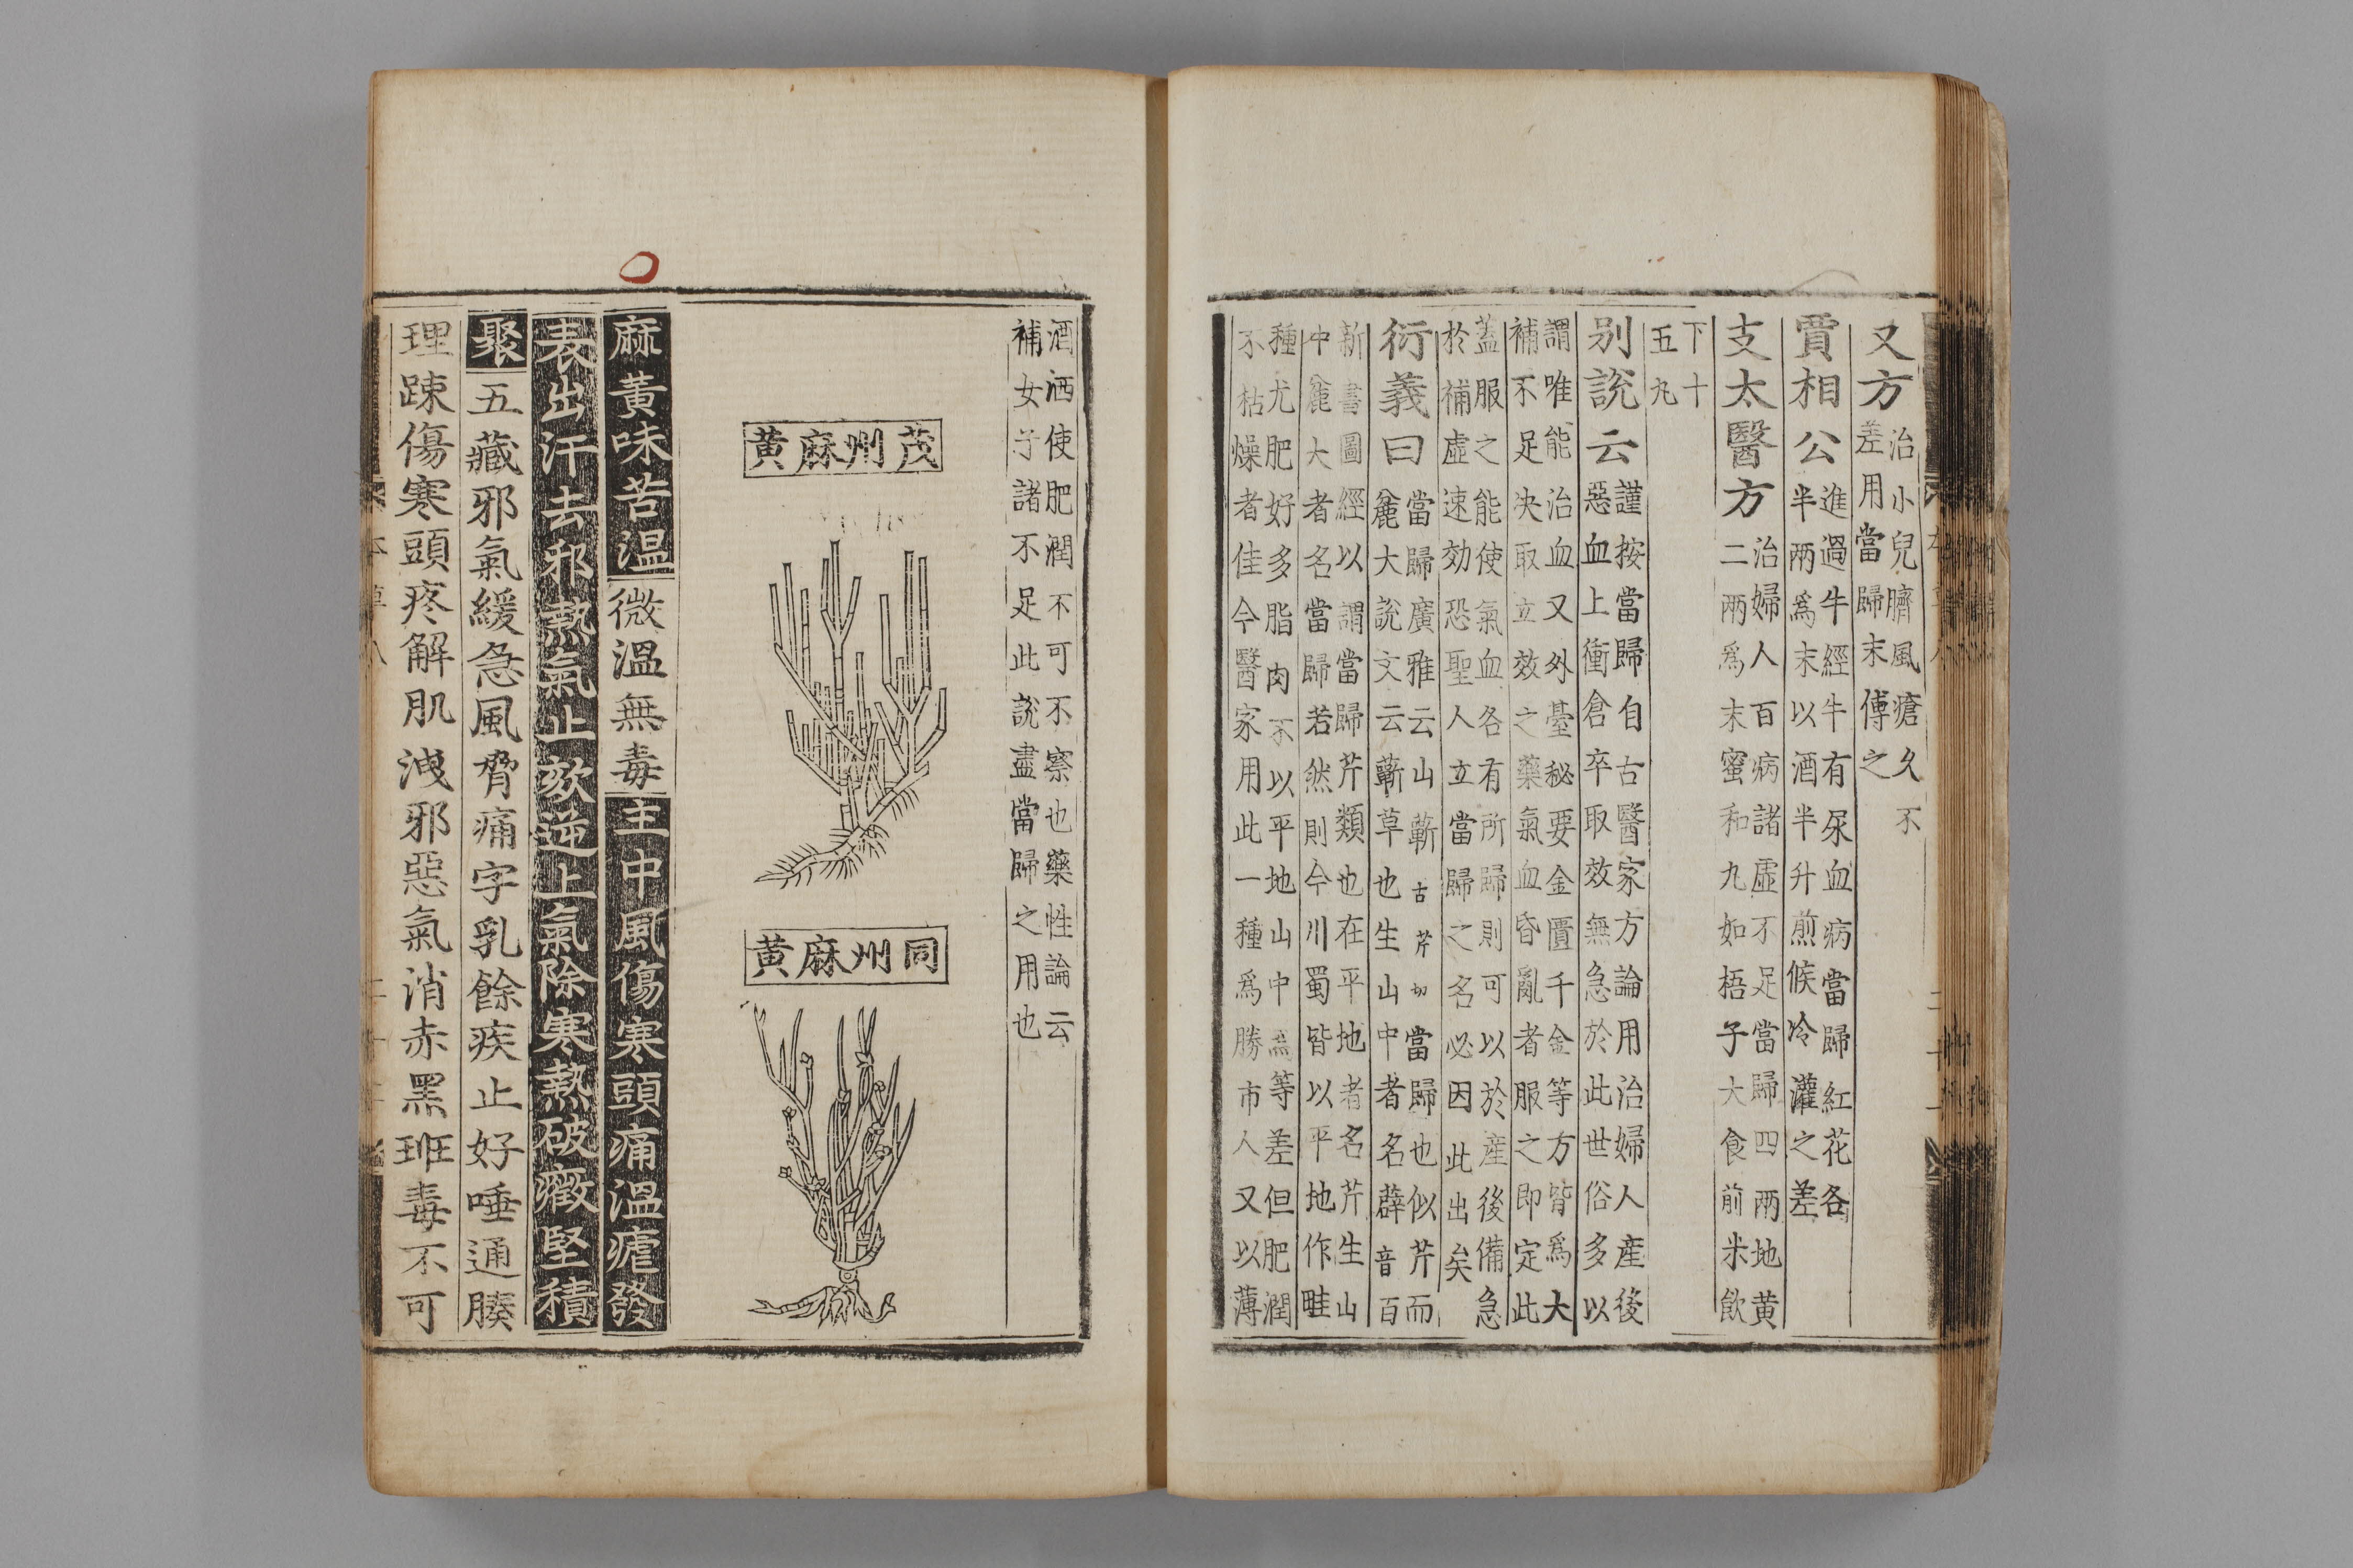 又方
治小兒臍風瘡久不
差用當歸末傅之
賈相公
進過牛經牛有尿血病當歸紅花各
半兩爲末以酒半升煎候冷灌之差
支太醫方
治婦人百病諸虛不足當歸四兩地黄
二兩爲末蜜和九如梧子大食前米飲
下十
五九
别說云
謹按當歸自古醫家方論用治婦人産後
惡血上衝倉卒取效無急於此世俗多以
謂唯能治血又外臺秘要金匱千金等方皆爲大
補不足决取立效之藥氣血昏亂者服之即定此
蓋服之能使氣血各有所歸則可以於産後備急
於補虛速効恐聖人立當歸之名必因此出矣
衍義曰
當歸廣雅云山蘄古芹切當歸也似芹而
麄大說文云蘄草也生山中者名薜音百
新書圖經以謂當歸芹類也在平地者名芹生山
中麄大者名當歸若然則今川蜀皆以平地作畦
種尤肥好多脂肉不以平地山中爲等差但肥潤
不枯燥者佳今醫家用此一種爲勝市人又以薄
酒洒使肥潤不可不察也藥性論云
補女子諸不足此說盡當歸之用也
茂州麻黄
同州麻黄
麻黃味苦溫微溫無毒主中風傷寒頭痛溫瘧發
表出汗去邪熱氣止欬逆上氣除寒熱破癥堅積
聚五藏邪氣緩急風脅痛字乳餘疾止好唾通腠
理踈傷寒頭疼解肌洩邪惡氣消赤黑班毒不可